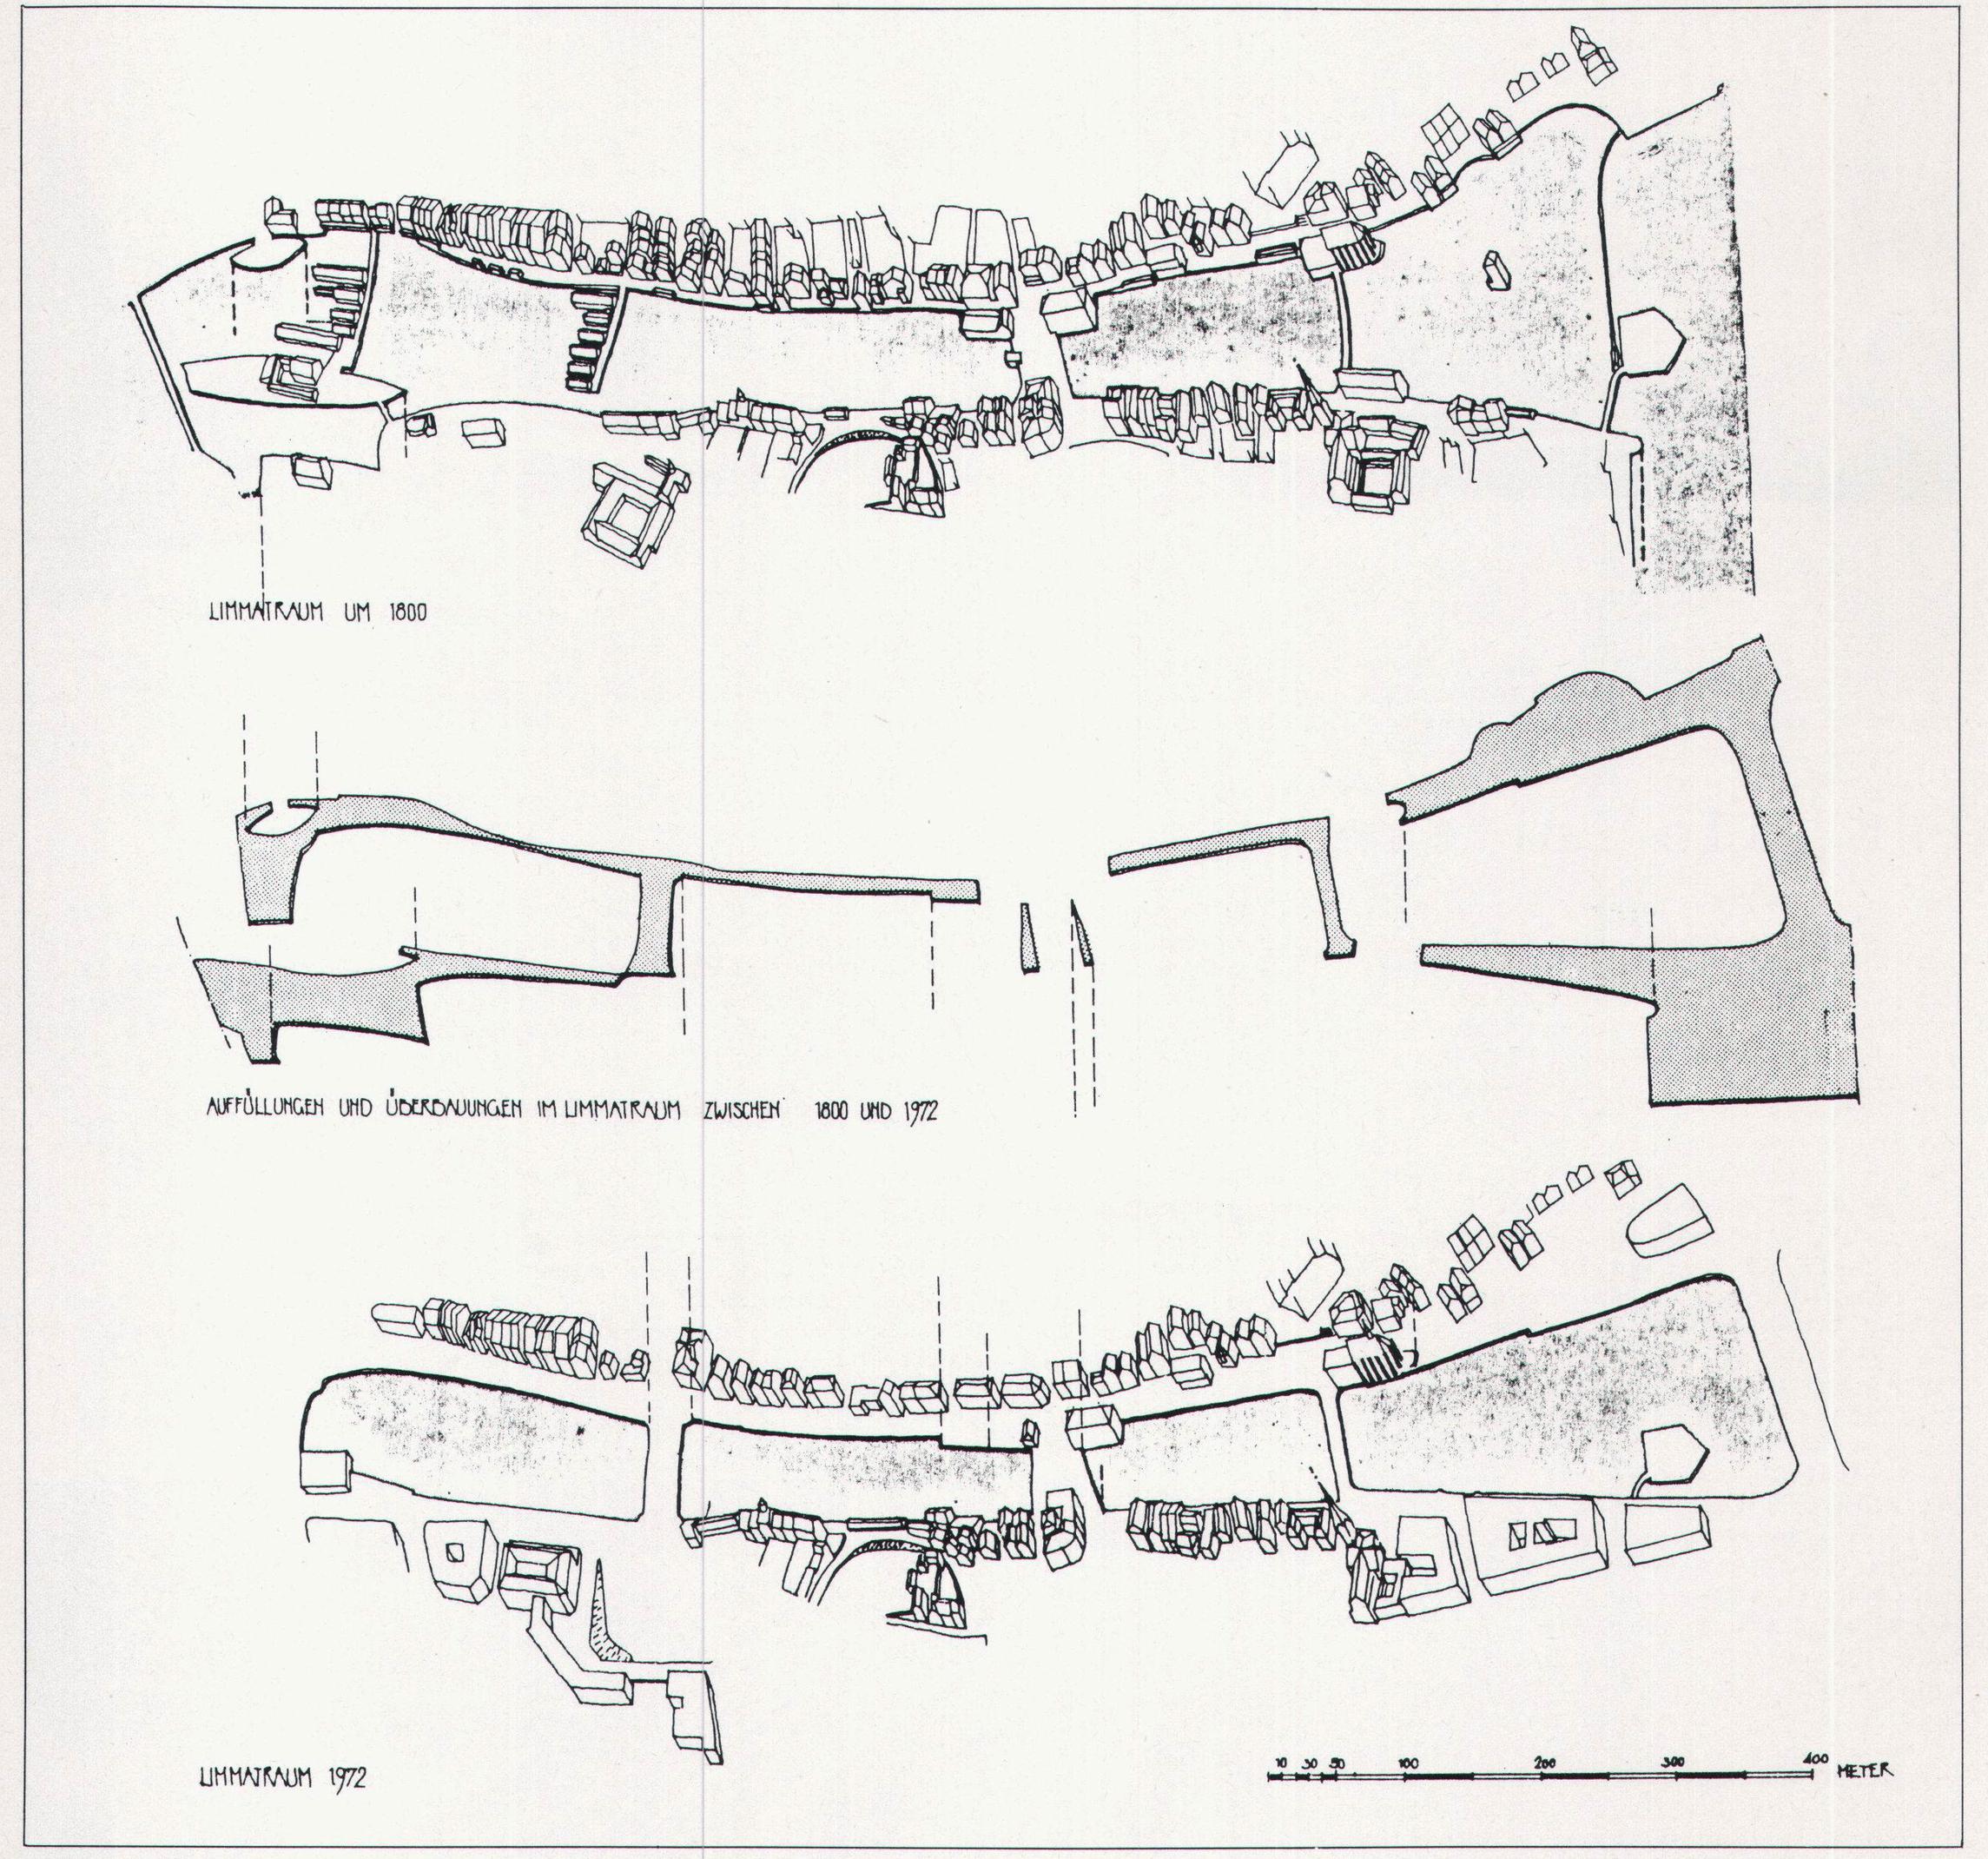 LIMMATRAUM UM 1800
AUFFÜLLUNGEN UND ÜBERBAUUNGEN IM LIMMATRAUM ZWISCHEN 1800 UND 1972
LIMMATRAUM 1972
10 30 50 100 200 300 400 METER